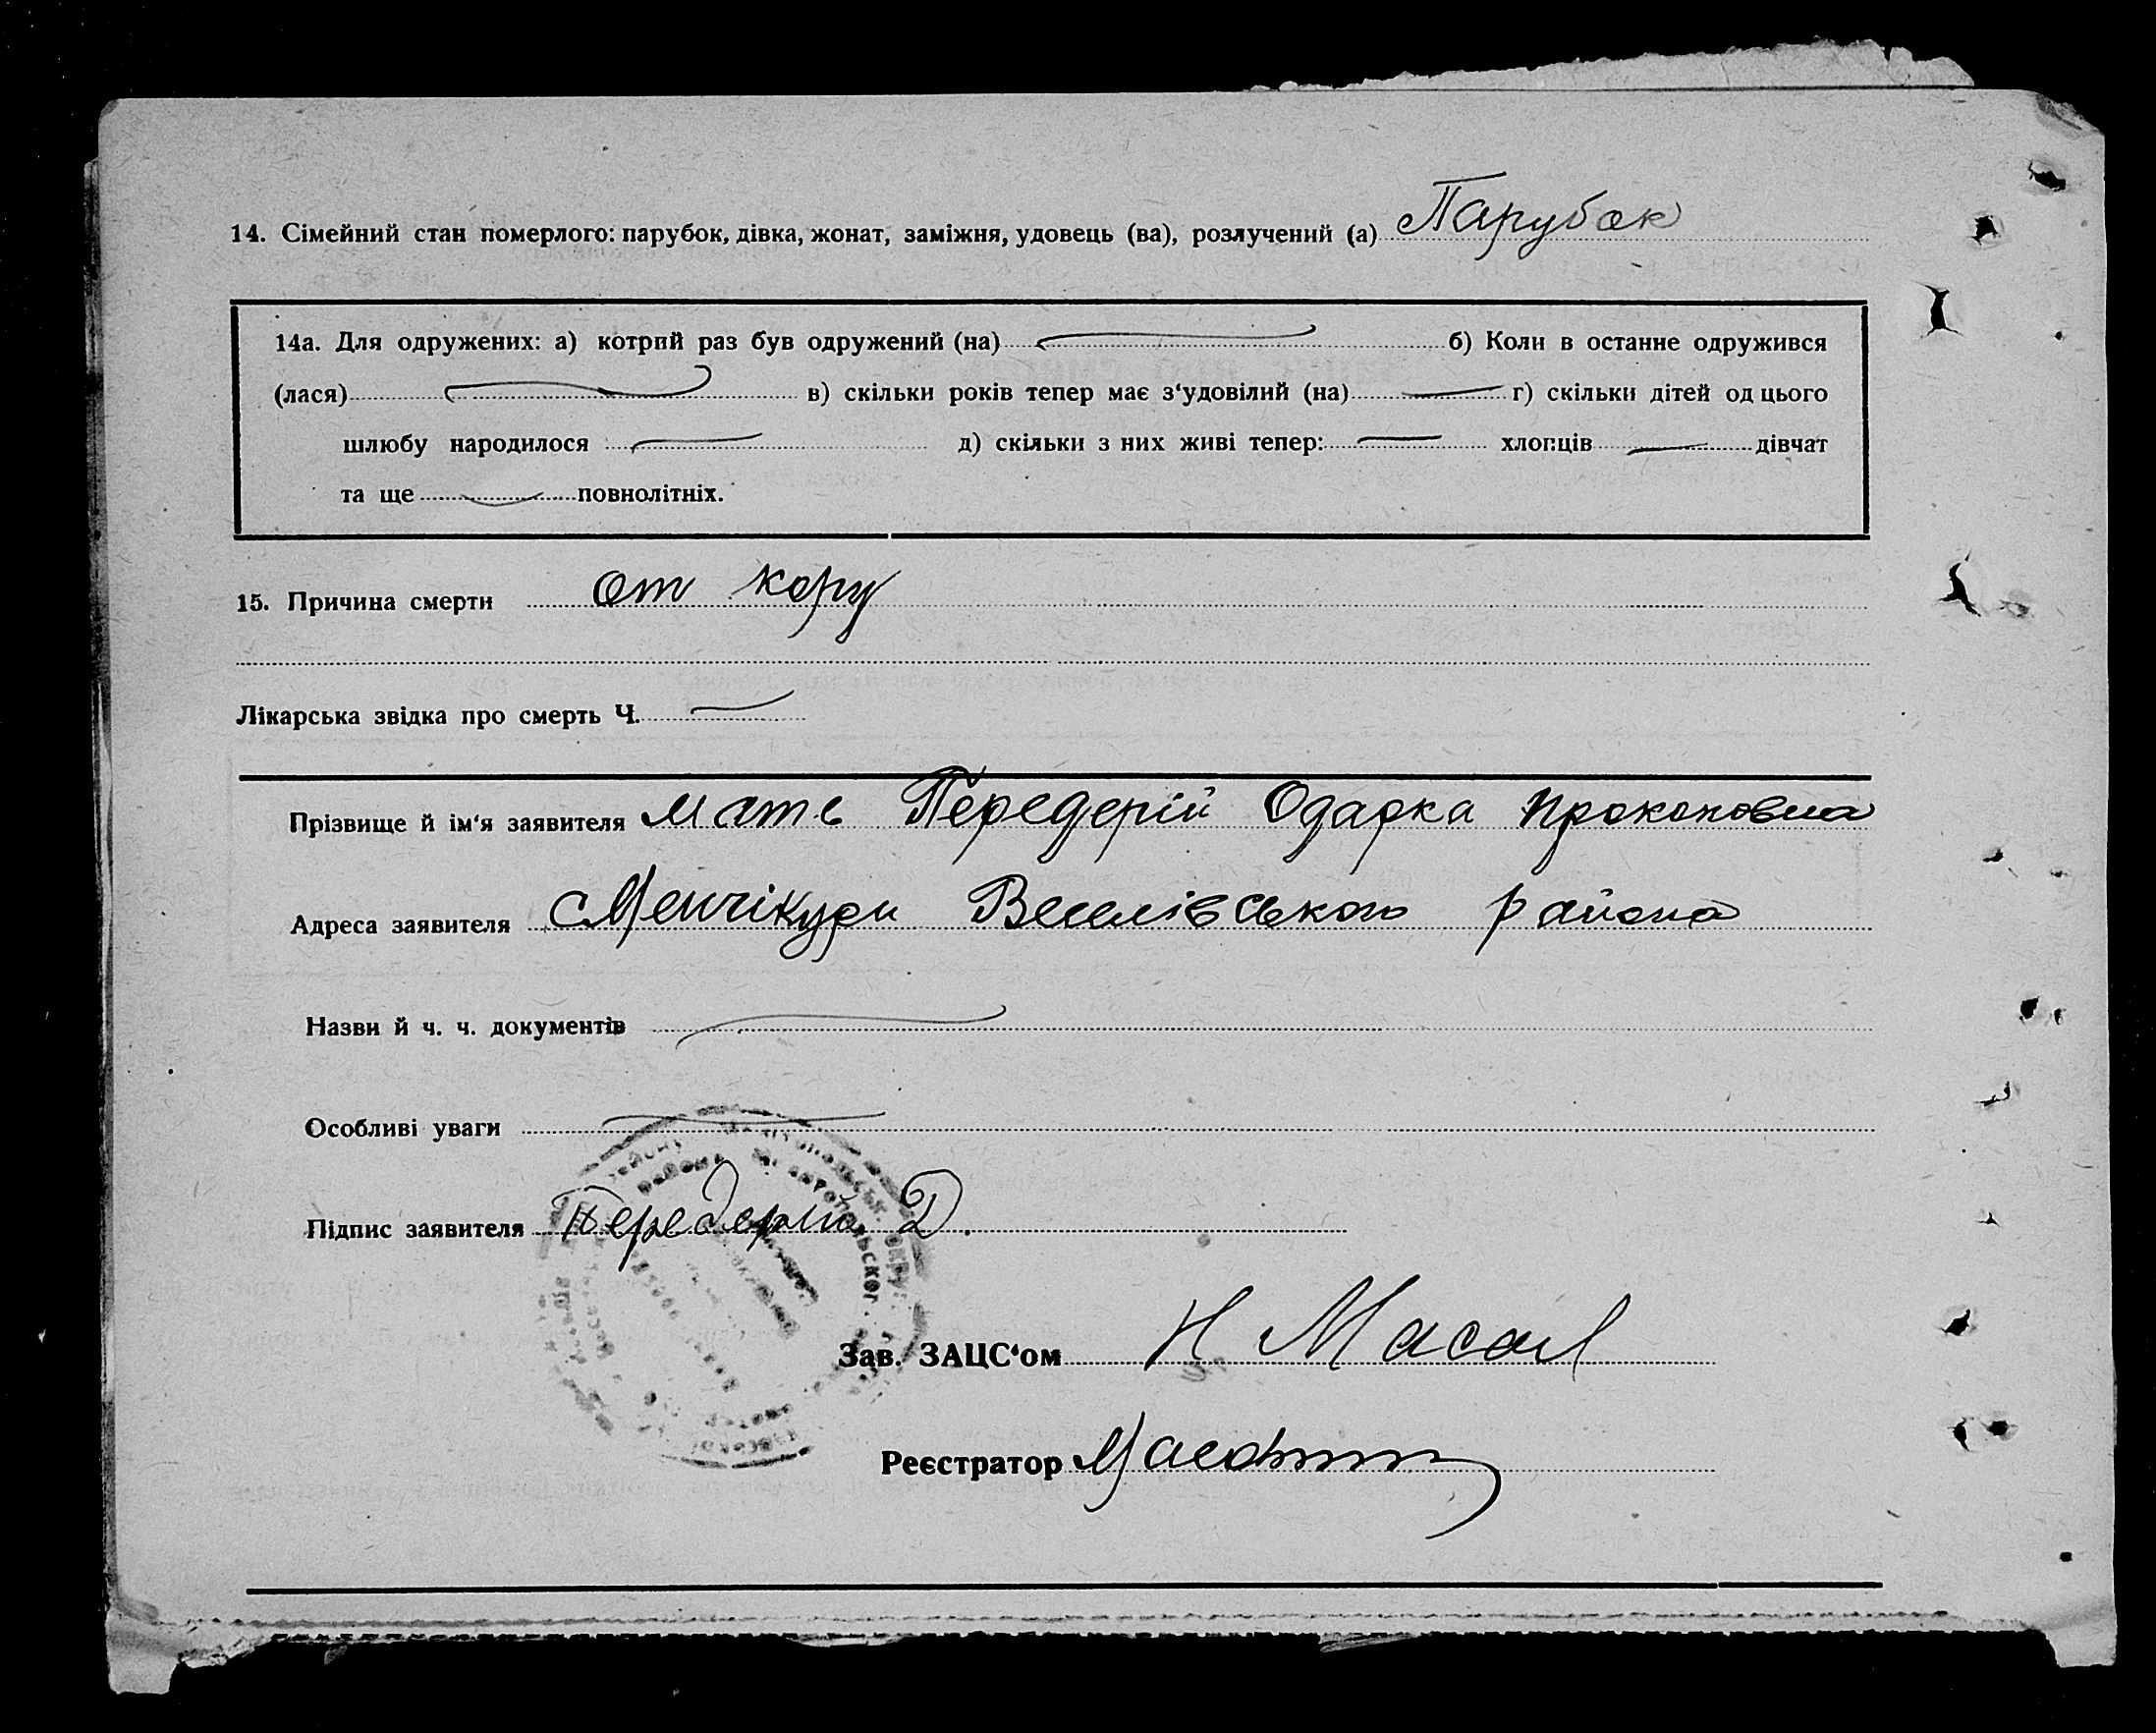 14. Сімейний стан померлого: парубок, дівка, жонат, заміжня, удовець (ва), розлучений (а) Парубок
14а. Для одружених: а) котрий раз був одружений (на) б) Коли в останне одружився
(лася) в) скільки років тепер має з‘удовілий (на) г) скільки дітей од цього
шлюбу народилося д) скільки з них живі тепер: хлопців дівчат
та ще повнолітніх.
15. Причина смерти от кору
Лікарська звідка про смерть Ч.
Прізвище й ім‘я заявителя мать Передерій Одарка Прокоповна
Адреса заявителя с Менчікури Веселівського района
Назви й ч. ч. документів
Особливі уваги
Підпис заявителя Передерій Д.
Зав. ЗАЦС‘ом Н
Реєстратор